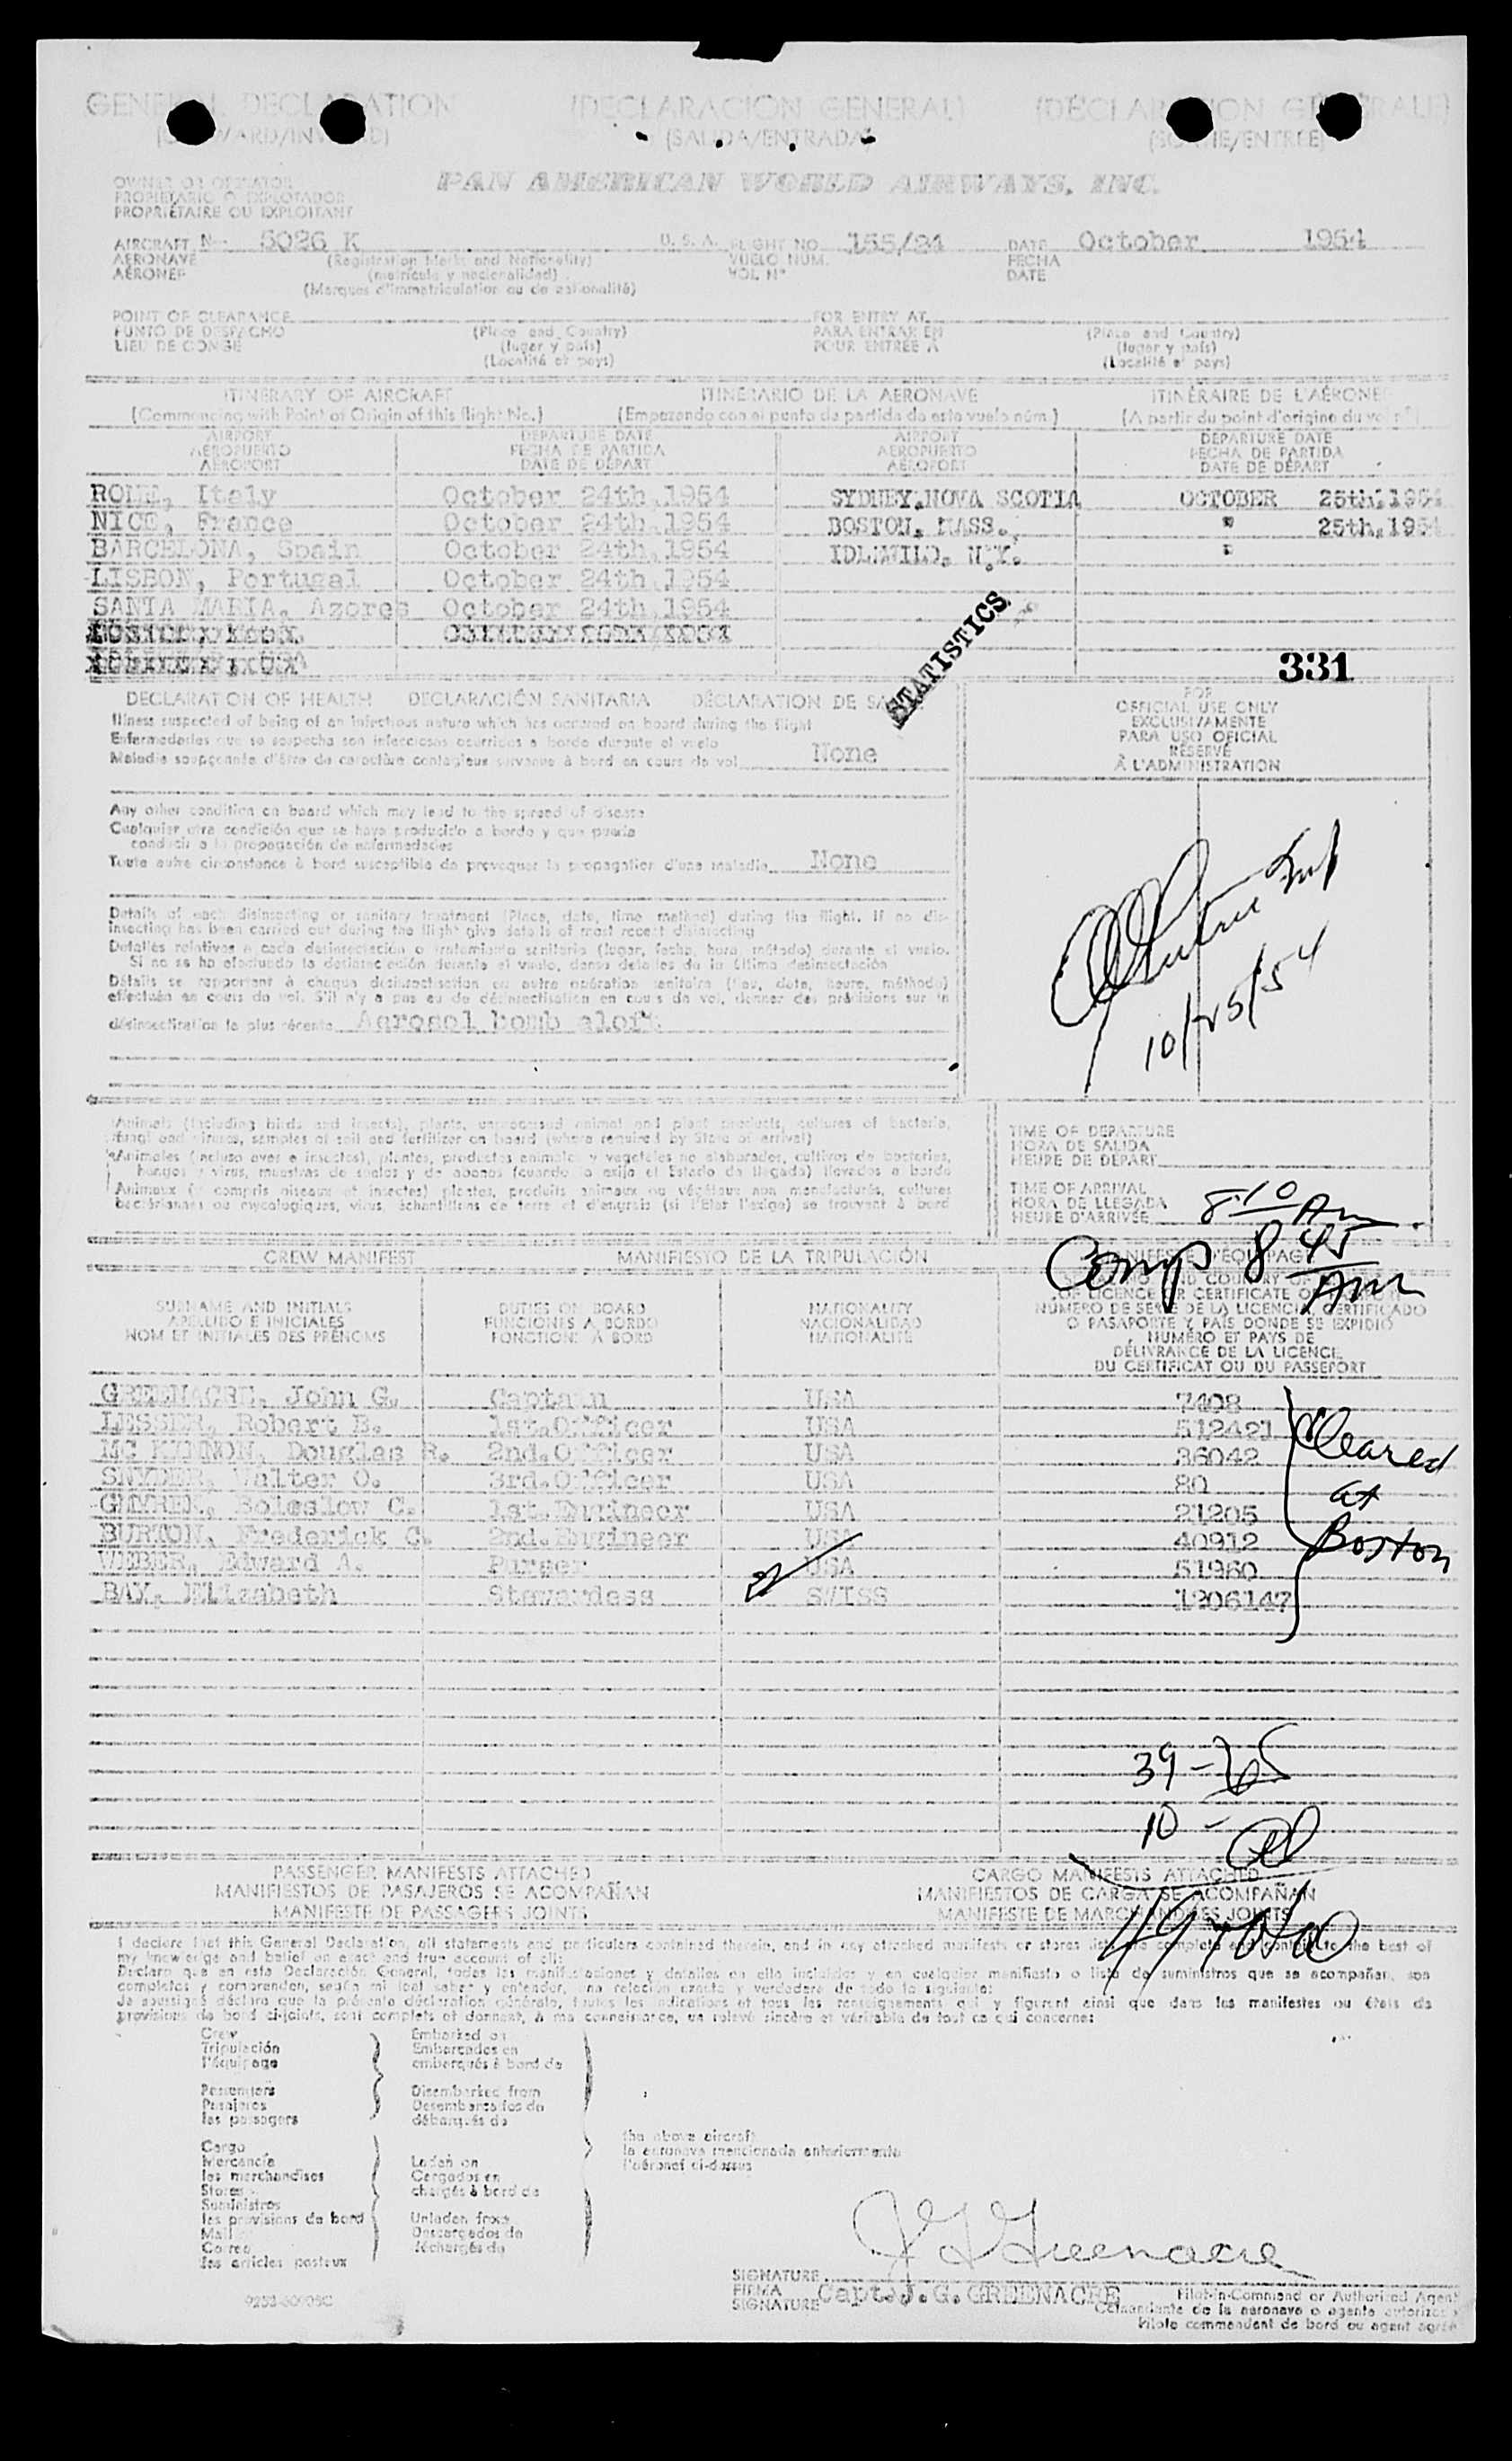 GENERAL DECLARATION (DECLARACIÓN GENERAL) (DÉCLARATION GÉNÉRALE)
(OUTWARD/INWARD) (SALIDA/ENTRADA) (SORTIE/ENTRÉE)
OWNER OR OPERATOR
PROPIETARIO O EXPLOTADOR
PROPRIÉTAIRE OU EXPLOITANT
PAN AMERICAN WORLD AIRWAYS, INC.
AIRCRAFT N- 5026 K U. S. A. FLIGHT NO. 155/24 DATE October 1954
AERONAVE (Registration Marks and Nationality) VUELO NÚM. FECHA
AÉRONEF (matrícula y nacionalidad) VOL Nº DATE
(Marques d'immatriculation ou de nationalité)
POINT OF CLEARANCE FOR ENTRY AT
PUNTO DE DESPACHO (Place and Country) PARA ENTRAR EN (Place and Country)
LIEU DE CONGÉ (lugar y país) POUR ENTRÉE À (lugar y país)
(Localité et pays) (Localité et pays)
ITINERARY OF AIRCRAFT ITINERARIO DE LA AERONAVE ITINÉRAIRE DE L'AÉRONEF
(Commencing with Point of Origin of this flight No.) (Empezando con el punto de partida de este vuelo núm.) (A partir du point d'origine du vol nº)
AIRPORT DEPARTURE DATE AIRPORT DEPARTURE DATE
AEROPUERTO FECHA DE PARTIDA AEROPUERTO FECHA DE PARTIDA
AÉROPORT DATE DE DÉPART AÉROPORT DATE DE DÉPART
ROME, Italy October 24th,1954 SYDNEY,NOVA SCOTIA OCTOBER 25th,1954
NICE, France October 24th,1954 BOSTON, MASS. " 25th,1954
BARCELONA, Spain October 24th,1954 IDLEWILD, N.Y. "
LISBON, Portugal October 24th,1954
SANTA MARIA, Azores October 24th,1954
STATISTICS
331
DECLARATION OF HEALTH DECLARACIÓN SANITARIA DÉCLARATION DE SA
Illness suspected of being of an infectious nature which has occurred on board during the flight
Enfermedades que se sospecha son infecciosas ocurridas a bordo durante el vuelo
Maladie soupçonnée d'être de caractère contagieux survenue à bord en cours de vol None
FOR
OFFICIAL USE ONLY
EXCLUSIVAMENTE
PARA USO OFICIAL
RÉSERVÉ
À L'ADMINISTRATION
Any other condition on board which may lead to the spread of disease
Cualquier otra condición que se haya producido a bordo y que pueda
conducir a la propagación de enfermedades
Toute autre circonstance à bord susceptible de provoquer la propagation d'une maladie None
Details of each disinsecting or sanitary treatment (Place, date, time method) during the flight. If no dis-
insecting has been carried out during the flight give details of most recent disinsecting
Detalles relativos a cada desinsectación o tratamiento sanitario (lugar, fecha, hora método) durante el vuelo.
Si no se ha efectuado la desinsectación durante el vuelo, dense detalles de la última desinsectación
Détails se rapportant à chaque désinsectisation ou autre opération sanitaire (lieu, date, heure, méthode)
effectuée en cours de vol. S'il n'y a pas eu de désinsectisation en cours de vol, donner des précisions sur la
désinsectisation la plus récente Aerosol bomb aloft
10/25/54
Animals (including birds and insects), plants, unprocessed animal and plant products, cultures of bacteria,
fungi and viruses, samples of soil and fertilizer on board (where required by State of arrival)
Animales (incluso aves e insectos), plantas, productos animales y vegetales no elaborados, cultivos de bacterias,
hongos y virus, muestras de suelos y de abonos (cuando lo exija el Estado de llegada) llevados a bordo
Animaux (y compris oiseaux et insectes) plantes, produits animaux ou végétaux non manufacturés, cultures
bactériennes ou mycologiques, virus, échantillons de terre et d'engrais (si l'État l'exige) se trouvant à bord
TIME OF DEPARTURE
HORA DE SALIDA
HEURE DE DÉPART
TIME OF ARRIVAL
HORA DE LLEGADA
HEURE D'ARRIVÉE 8:10 Am
Comp 8 45 Am
CREW MANIFEST MANIFIESTO DE LA TRIPULACIÓN MANIFESTE D'ÉQUIPAGE
SURNAME AND INITIALS DUTIES ON BOARD NATIONALITY
APELLIDO E INICIALES FUNCIONES A BORDO NACIONALIDAD
NOM ET INITIALES DES PRÉNOMS FONCTIONS À BORD NATIONALITÉ
OF LICENCE OR CERTIFICATE O
NÚMERO DE SERIE DE LA LICENCIA, CERTIFICADO
O PASAPORTE Y PAÍS DONDE SE EXPIDIÓ
NUMÉRO ET PAYS DE
DÉLIVRANCE DE LA LICENCE,
DU CERTIFICAT OU DU PASSEPORT
GREENACRE, John G. Captain USA 7408
LESSER, Robert B. 1st.Officer USA 512421
MC KINNON, Douglas R. 2nd.Officer USA 36042
SNYDER, Walter O. 3rd.Officer USA 80
GMYREK, Boleslow C. 1st.Engineer USA 21205
BURTON, Frederick C. 2nd.Engineer USA 40912
WEBER, Edward A. Purser USA 51960
BAY, Elizabeth Stewardess SWISS 1206147
Cleared
at
Boston
39 -
10 -
PASSENGER MANIFESTS ATTACHED CARGO MANIFESTS ATTACHED
MANIFIESTOS DE PASAJEROS SE ACOMPAÑAN MANIFIESTOS DE CARGA SE ACOMPAÑAN
MANIFESTE DE PASSAGERS JOINTS MANIFESTE DE MARCHANDISES JOINTS
I declare that this General Declaration, all statements and particulars contained therein, and in any attached manifests or stores list are complete and contain to the best of
my knowledge and belief an exact and true account of all:
Declaro que en esta Declaración General, todas las manifestaciones y detalles en ella incluídos y en cualquier manifiesto o lista de suministros que se acompañan, son
completos y comprenden, según mi leal saber y entender, una relación exacta y verdadera de todo lo siguiente:
Je soussigné déclare que la présente déclaration générale, toutes les indications et tous les renseignements qui y figurent ainsi que dans les manifestes ou états de
provisions de bord ci-joints, sont complets et donnent, à ma connaissance, un relevé sincère et véritable de tout ce qui concerne:
Crew Embarked on
Tripulación Embarcados en
l'équipage embarqués à bord de
Passengers Disembarked from
Pasajeros Desembarcados de
les passagers débarqués de
the above aircraft
la aeronave mencionada anteriormente
l'aéronef ci-dessus
Cargo
Mercancía Laden on
les marchandises Cargados en
Stores chargés à bord de
Suministros
les provisions de bord Unladen from
Mail Descargados de
Correo déchargés de
les articles postaux
J G Greenacre
SIGNATURE
FIRMA Capt.J.G.GREENACRE Pilot-in-Command or Authorized Agent
SIGNATURE Comandante de la aeronave o agente autorizado
Pilote commandant de bord ou agent agréé